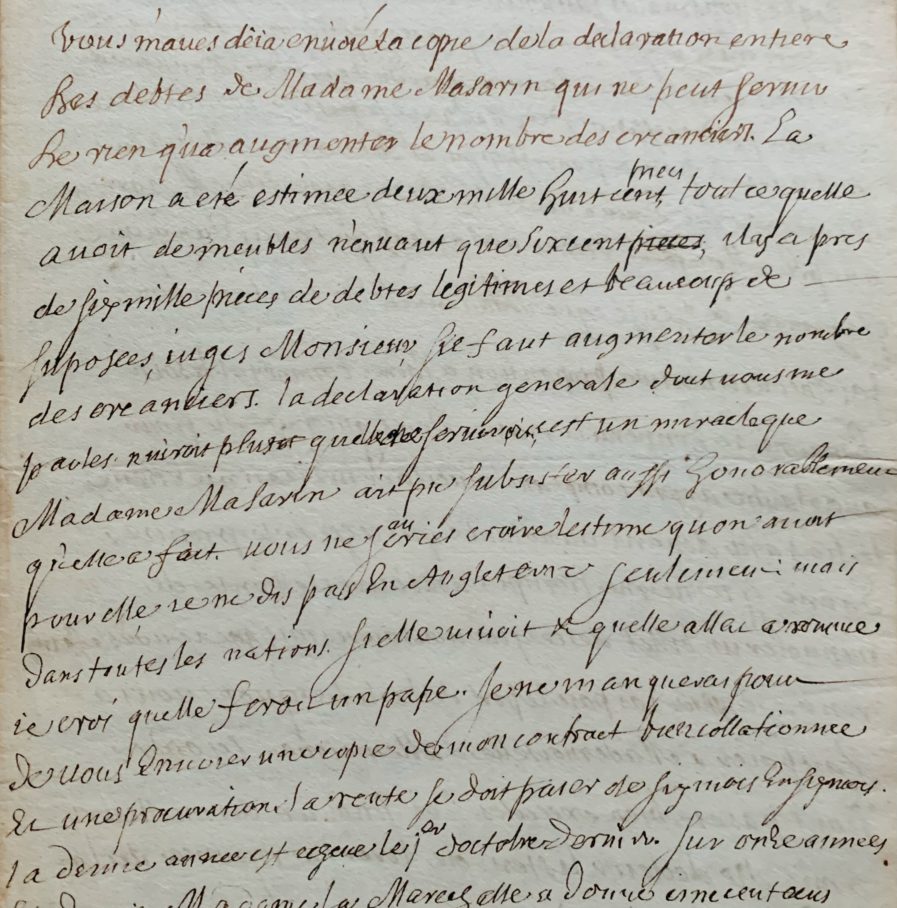 Vous m'aves déia enuoié la copie de la declaration entiere
des debtes de Madame Masarin qui ne peut seruir
de rien qu'a augmenter le nombre des creanciers. La
Maison a eté estimée deux mille huit cent pieces, tout ce quelle
auoit de meubles n'en vaut que six cent pieces, il y a pres
de six mille pieces de debtes legitimes et beaucoup de
suposées, iugés Monsieur s'il faut augmenter le nombre
des creanciers. la declaration generale dont vous me
parles nuiroit plustot quelle ne seruiroit, c'est un miracle que
Madame Masarin ait pu subsister aussi honorablement
qu'elle a fait. vous ne sauries croire l'estime qu'on auoit
pour elle ie ne dis pas En Angleterre seulement: mais
dans toutes les nations. si elle viuoit & quelle allat a romme
ie croi quelle feroit un pape. Je ne manquerai pas
de vous Enuoier une copie de mon contract bien collationnée
Et une procuration. la rente se doit paier de six mois En six mois.
la derniere année est echeue le 1er d'octobre dernier. sur onze années
Madame la Mareschalle a donné cinc cent ecus